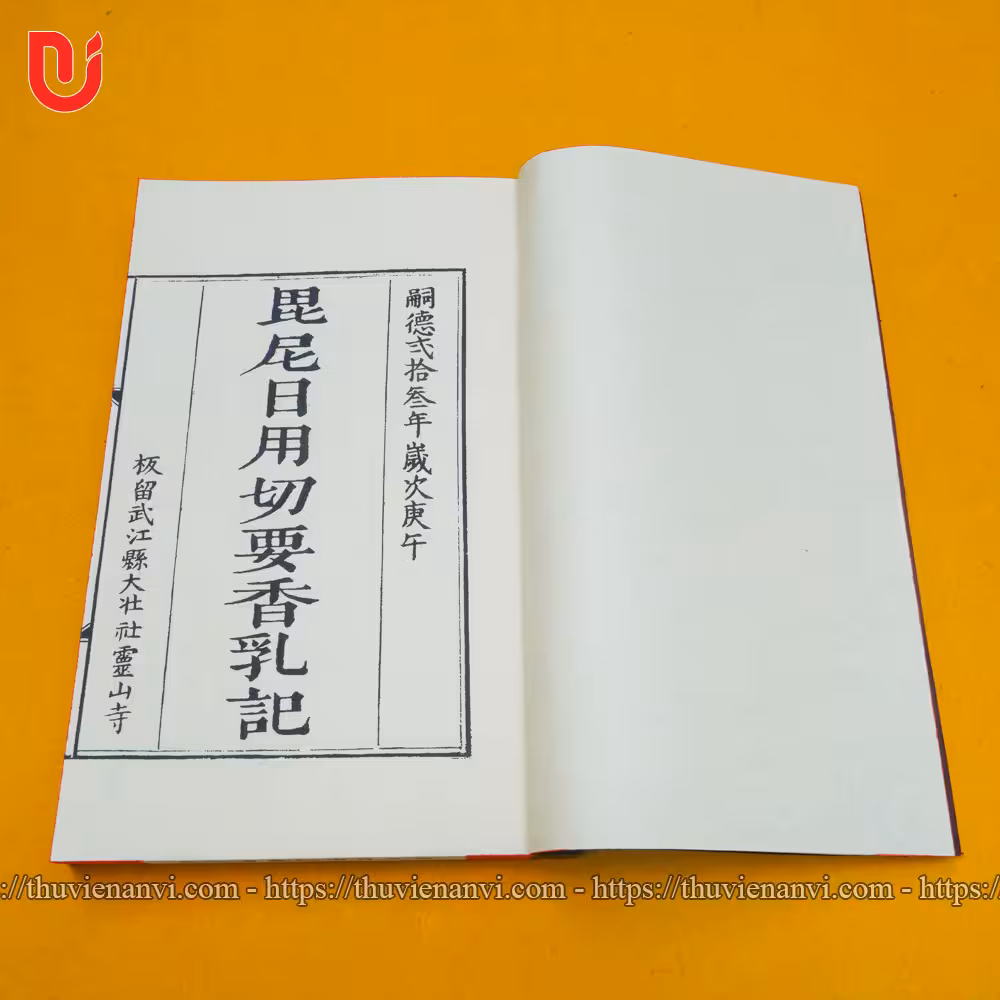 嗣德弍拾叁年歲次庚午
毘尼日用切要香乳記
板留武江縣大壯社靈山寺
://thuvienanvi.com - https://thuvienanvi.com - https://thuvienanvi.com - https:/